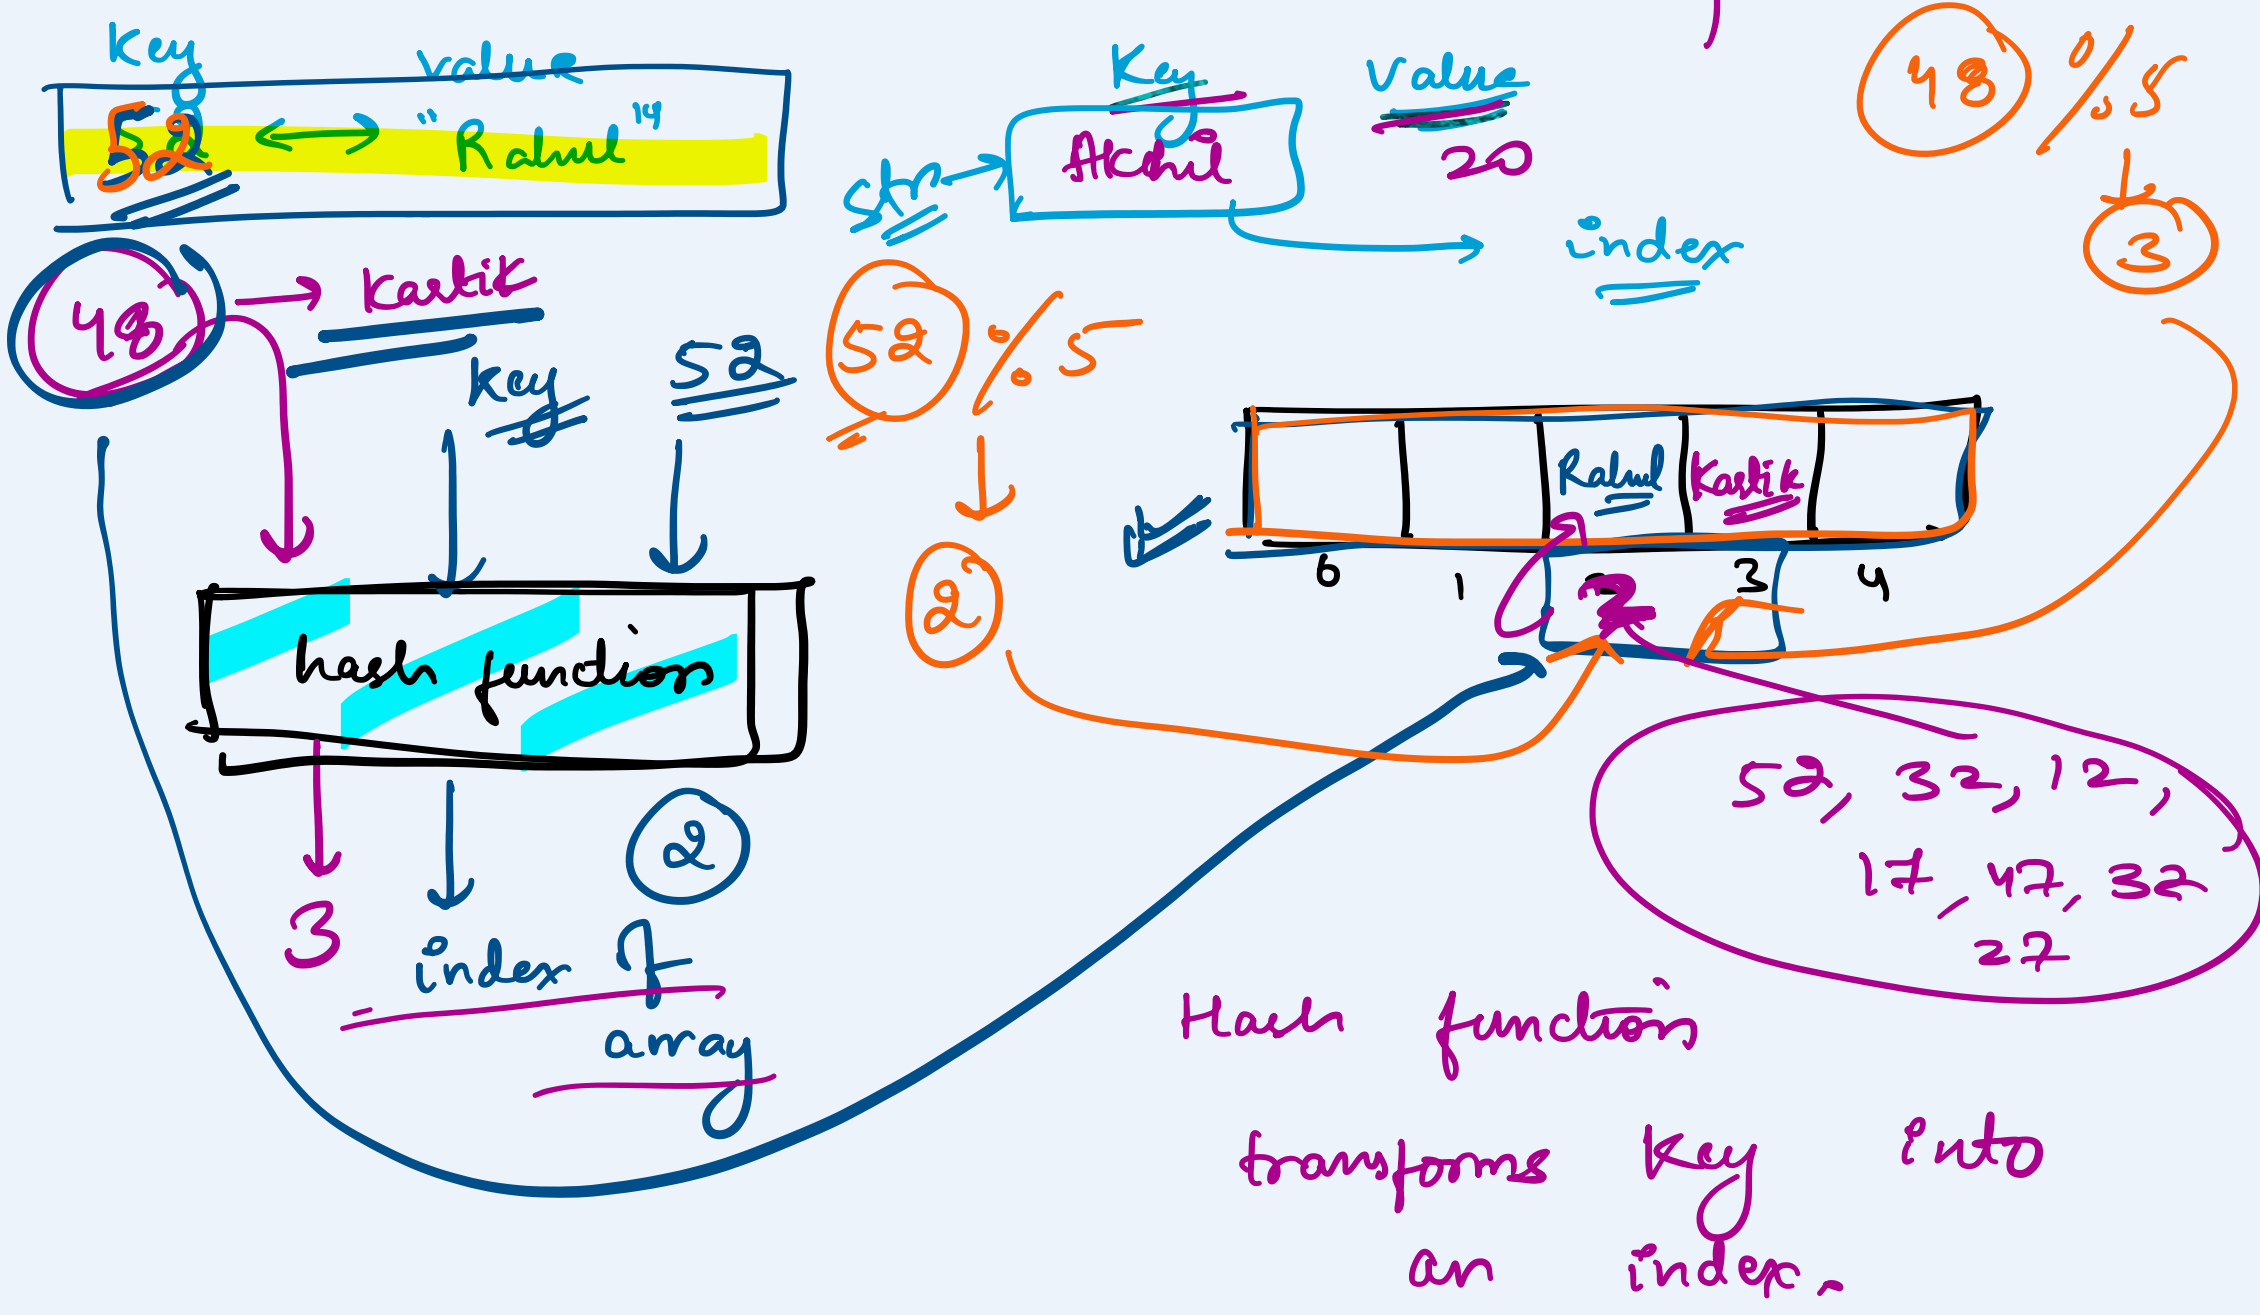 Key Value
52 ↔ "Rahul"
Key Value
str → Akhil 20
index
48 % 5
3
48 → Kartik
Key
52
52 % 5
2
Rahul Kartik
0 1 2 3 4
hash function
3
2
index of
array
52, 32, 12,
17, 47, 37
27
Hash function
transforms Key into
an index.